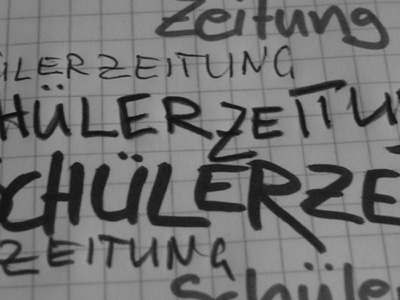 Zeitung
ÜLERZEITUNG
HÜLERZEITU
CHÜLERZE
ZEITUNG
Schüler